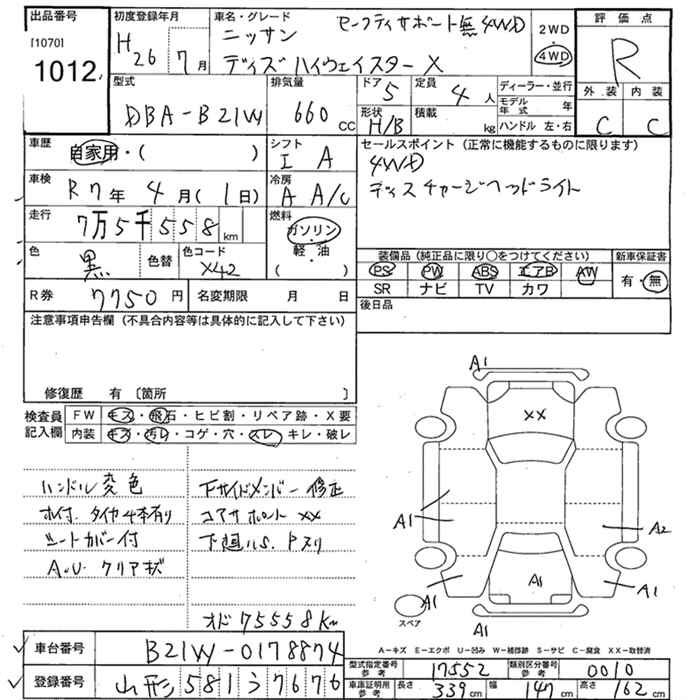 出品番号
[1070]
1012
初度登録年月
H26 7月
車名・グレード
セーフティサポート無 4WD
ニッサン
デイズハイウェイスター X
2WD
4WD
評価点
R
外装 内装
C C
型式
DBA-B21W
排気量
660 cc
ドア
5
定員
4 人
形状
H/B
積載
kg
ディーラー・並行
モデル年式 年
ハンドル 左・右
車歴
自家用・( )
シフト
I A
車検
R7年 4月(1日)
冷房
A A/C
走行
7万5千558 km
燃料
ガソリン
軽・油
( )
色
黒
色替
色コード
X42
R券 7750円
名変期限 月 日
セールスポイント (正常に機能するものに限ります)
4WD
ディスチャージヘッドライト
装備品 (純正品に限り○をつけてください)
PS PW ABS エアB AW
SR ナビ TV カワ
新車保証書
有・無
後日品
注意事項申告欄 (不具合内容等は具体的に記入して下さい)
修復歴 有 〔箇所 〕
検査員記入欄
FW キズ・飛石・ヒビ割・リペア跡・X要
内装 キズ・汚レ・コゲ・穴・スレ・キレ・破レ
ハンドル変色
ホイ付. タイヤ4本有り
シートカバー付
A.U. クリア状
下サイドメンバー修正
コアサポート XX
下廻りS. Pスリ
オド 75558km
A1
XX
スペア
A1
A2
A1
A1
A1
A1
A-キズ E-エクボ U-凹み W-補修跡 S-サビ C-腐食 XX-取替済
車台番号
B21W-0178874
登録番号
山形 581 う 7676
型式指定番号 参考
17552
類別区分番号 参考
0010
車庫証明用 参考
長さ 339 cm
幅 147 cm
高さ 162 cm